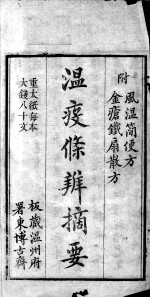 附
風温简便方
金瘡鐵扇散方
温疫條辨摘要
重太紙每本
大錢八十文
板藏温州府
署東博古齋